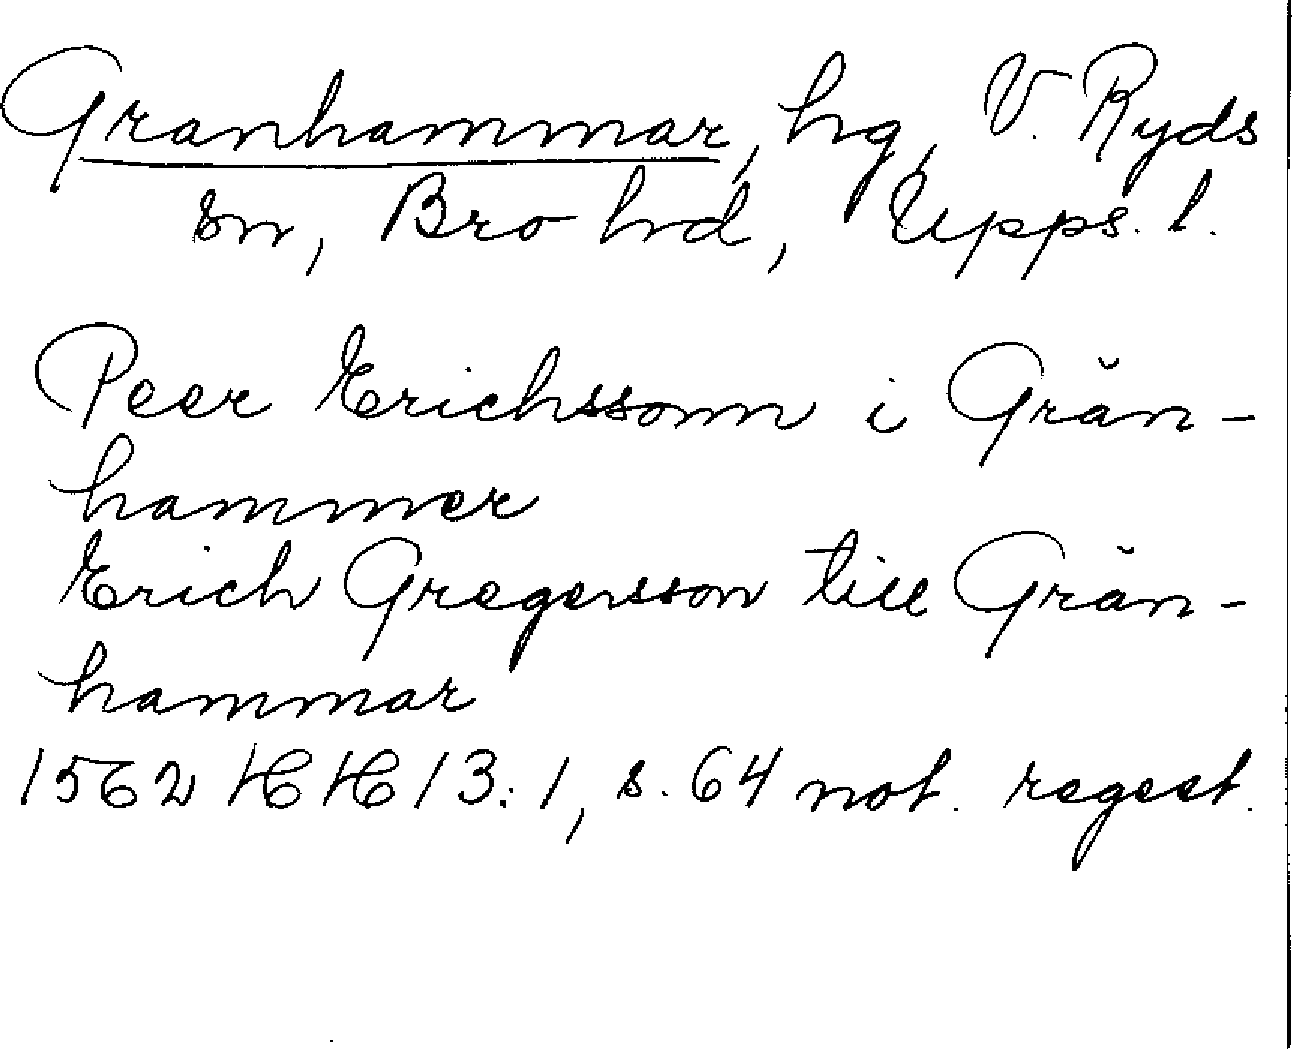 Granhammar, hg, V. Ryds
sn, Bro hd, Upps. l.
Peer Erichssonn i Grăn-
hammer
Erich Gregersson till Grăn-
hammar
1562 HH 13:1, s. 64 not. regest.